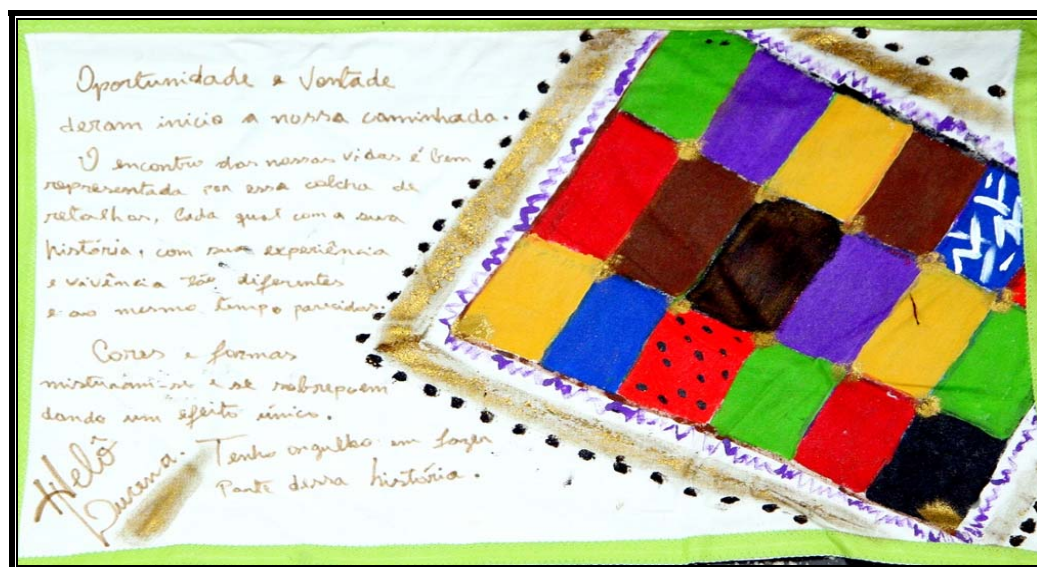 Oportunidade e Vontade
deram início a nossa caminhada.
O encontro das nossas vidas é bem
representada por essa colcha de
retalhos, Cada qual com a sua
história, com sua experiência
e vivência tão diferentes
e ao mesmo tempo parecidas.
Cores e formas
misturam-se e se sobrepoem
dando um efeito único.
Tenho orgulho em fazer
parte dessa história.
Helô
Lucena.